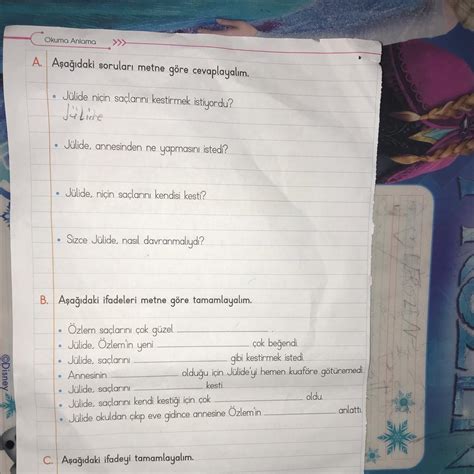 Okuma Anlama >>>
A. Aşağıdaki soruları metne göre cevaplayalım.
• Jülide niçin saçlarını kestirmek istiyordu?
Jülide
• Jülide, annesinden ne yapmasını istedi?
• Jülide, niçin saçlarını kendisi kesti?
• Sizce Jülide, nasıl davranmalıydı?
B. Aşağıdaki ifadeleri metne göre tamamlayalım.
• Özlem saçlarını çok güzel ____________.
• Jülide, Özlem'in yeni ____________ çok beğendi.
• Jülide, saçlarını ____________ gibi kestirmek istedi.
• Annesinin ____________ olduğu için Jülide'yi hemen kuaföre götüremedi.
• Jülide, saçlarını ____________ kesti.
• Jülide, saçlarını kendi kestiği için çok ____________ oldu.
• Jülide okuldan çıkıp eve gidince annesine Özlem'in ____________ anlattı.
C. Aşağıdaki ifadeyi tamamlayalım.
©Disney